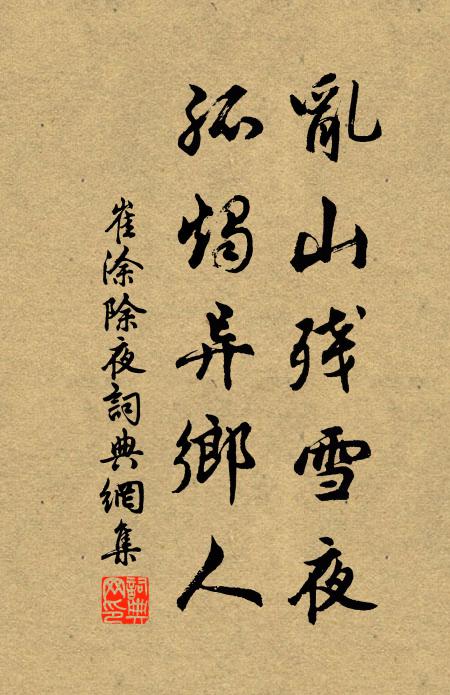 亂山残雪夜
孤燭异鄉人
崔涂除夜詞典網集
詞典网印